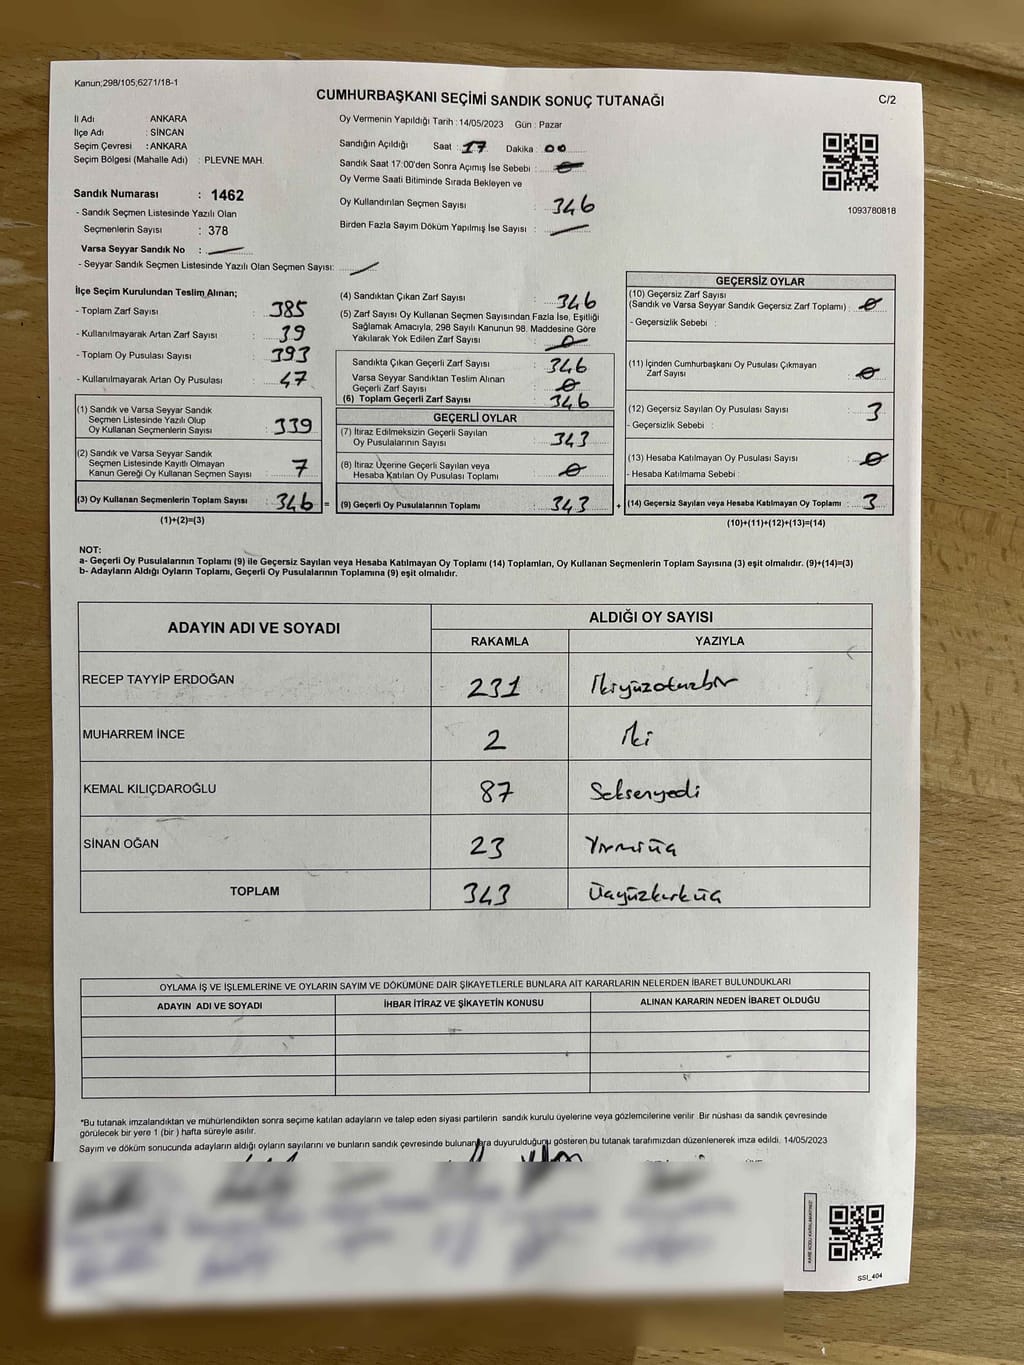 Kanun;298/105;6271/18-1
CUMHURBAŞKANI SEÇİMİ SANDIK SONUÇ TUTANAĞI
C/2
İl Adı : ANKARA
İlçe Adı : SİNCAN
Seçim Çevresi : ANKARA
Seçim Bölgesi (Mahalle Adı) : PLEVNE MAH.
Oy Vermenin Yapıldığı Tarih : 14/05/2023 Gün : Pazar
Sandığın Açıldığı Saat : 17 Dakika : 00
Sandık Saat 17:00'den Sonra Açımış İse Sebebi :
Oy Verme Saati Bitiminde Sırada Bekleyen ve
Oy Kullandırılan Seçmen Sayısı : 346
Birden Fazla Sayım Döküm Yapılmış İse Sayısı :
1093780818
Sandık Numarası : 1462
- Sandık Seçmen Listesinde Yazılı Olan
Seçmenlerin Sayısı : 378
Varsa Seyyar Sandık No :
- Seyyar Sandık Seçmen Listesinde Yazılı Olan Seçmen Sayısı:
İlçe Seçim Kurulundan Teslim Alınan;
- Toplam Zarf Sayısı : 385
- Kullanılmayarak Artan Zarf Sayısı : 39
- Toplam Oy Pusulası Sayısı : 393
- Kullanılmayarak Artan Oy Pusulası : 47
(1) Sandık ve Varsa Seyyar Sandık
Seçmen Listesinde Yazılı Olup
Oy Kullanan Seçmenlerin Sayısı : 339
(2) Sandık ve Varsa Seyyar Sandık
Seçmen Listesinde Kayıtlı Olmayan
Kanun Gereği Oy Kullanan Seçmen Sayısı : 7
(3) Oy Kullanan Seçmenlerin Toplam Sayısı : 346 =
(1)+(2)=(3)
(4) Sandıktan Çıkan Zarf Sayısı : 346
(5) Zarf Sayısı Oy Kullanan Seçmen Sayısından Fazla İse, Eşitliği
Sağlamak Amacıyla, 298 Sayılı Kanunun 98. Maddesine Göre
Yakılarak Yok Edilen Zarf Sayısı : 0
Sandıkta Çıkan Geçerli Zarf Sayısı : 346
Varsa Seyyar Sandıktan Teslim Alınan
Geçerli Zarf Sayısı : 0
(6) Toplam Geçerli Zarf Sayısı : 346
GEÇERLİ OYLAR
(7) İtiraz Edilmeksizin Geçerli Sayılan
Oy Pusulalarının Sayısı : 343
(8) İtiraz Üzerine Geçerli Sayılan veya
Hesaba Katılan Oy Pusulası Toplamı : 0
(9) Geçerli Oy Pusulalarının Toplamı : 343 +
GEÇERSİZ OYLAR
(10) Geçersiz Zarf Sayısı
(Sandık ve Varsa Seyyar Sandık Geçersiz Zarf Toplamı) : 0
- Geçersizlik Sebebi :
(11) İçinden Cumhurbaşkanı Oy Pusulası Çıkmayan
Zarf Sayısı : 0
(12) Geçersiz Sayılan Oy Pusulası Sayısı : 3
- Geçersizlik Sebebi :
(13) Hesaba Katılmayan Oy Pusulası Sayısı : 0
- Hesaba Katılmama Sebebi :
(14) Geçersiz Sayılan veya Hesaba Katılmayan Oy Toplamı : 3
(10)+(11)+(12)+(13)=(14)
NOT:
a- Geçerli Oy Pusulalarının Toplamı (9) ile Geçersiz Sayılan veya Hesaba Katılmayan Oy Toplamı (14) Toplamları, Oy Kullanan Seçmenlerin Toplam Sayısına (3) eşit olmalıdır. (9)+(14)=(3)
b- Adayların Aldığı Oyların Toplamı, Geçerli Oy Pusulalarının Toplamına (9) eşit olmalıdır.
ADAYIN ADI VE SOYADI
ALDIĞI OY SAYISI
RAKAMLA YAZIYLA
RECEP TAYYİP ERDOĞAN 231 İkiyüzotuzbir
MUHARREM İNCE 2 İki
KEMAL KILIÇDAROĞLU 87 Seksenyedi
SİNAN OĞAN 23 Yirmiüç
TOPLAM 343 Üçyüzkırküç
OYLAMA İŞ VE İŞLEMLERİNE VE OYLARIN SAYIM VE DÖKÜMÜNE DAİR ŞİKAYETLERLE BUNLARA AİT KARARLARIN NELERDEN İBARET BULUNDUKLARI
ADAYIN ADI VE SOYADI İHBAR İTİRAZ VE ŞİKAYETİN KONUSU ALINAN KARARIN NEDEN İBARET OLDUĞU
*Bu tutanak imzalandıktan ve mühürlendikten sonra seçime katılan adayların ve talep eden siyasi partilerin sandık kurulu üyelerine veya gözlemcilerine verilir. Bir nüshası da sandık çevresinde
görülecek bir yere 1 (bir ) hafta süreyle asılır.
Sayım ve döküm sonucunda adayların aldığı oyların sayılarını ve bunların sandık çevresinde bulunanlara duyurulduğunu gösteren bu tutanak tarafımızdan düzenlenerek imza edildi. 14/05/2023
SSI_404